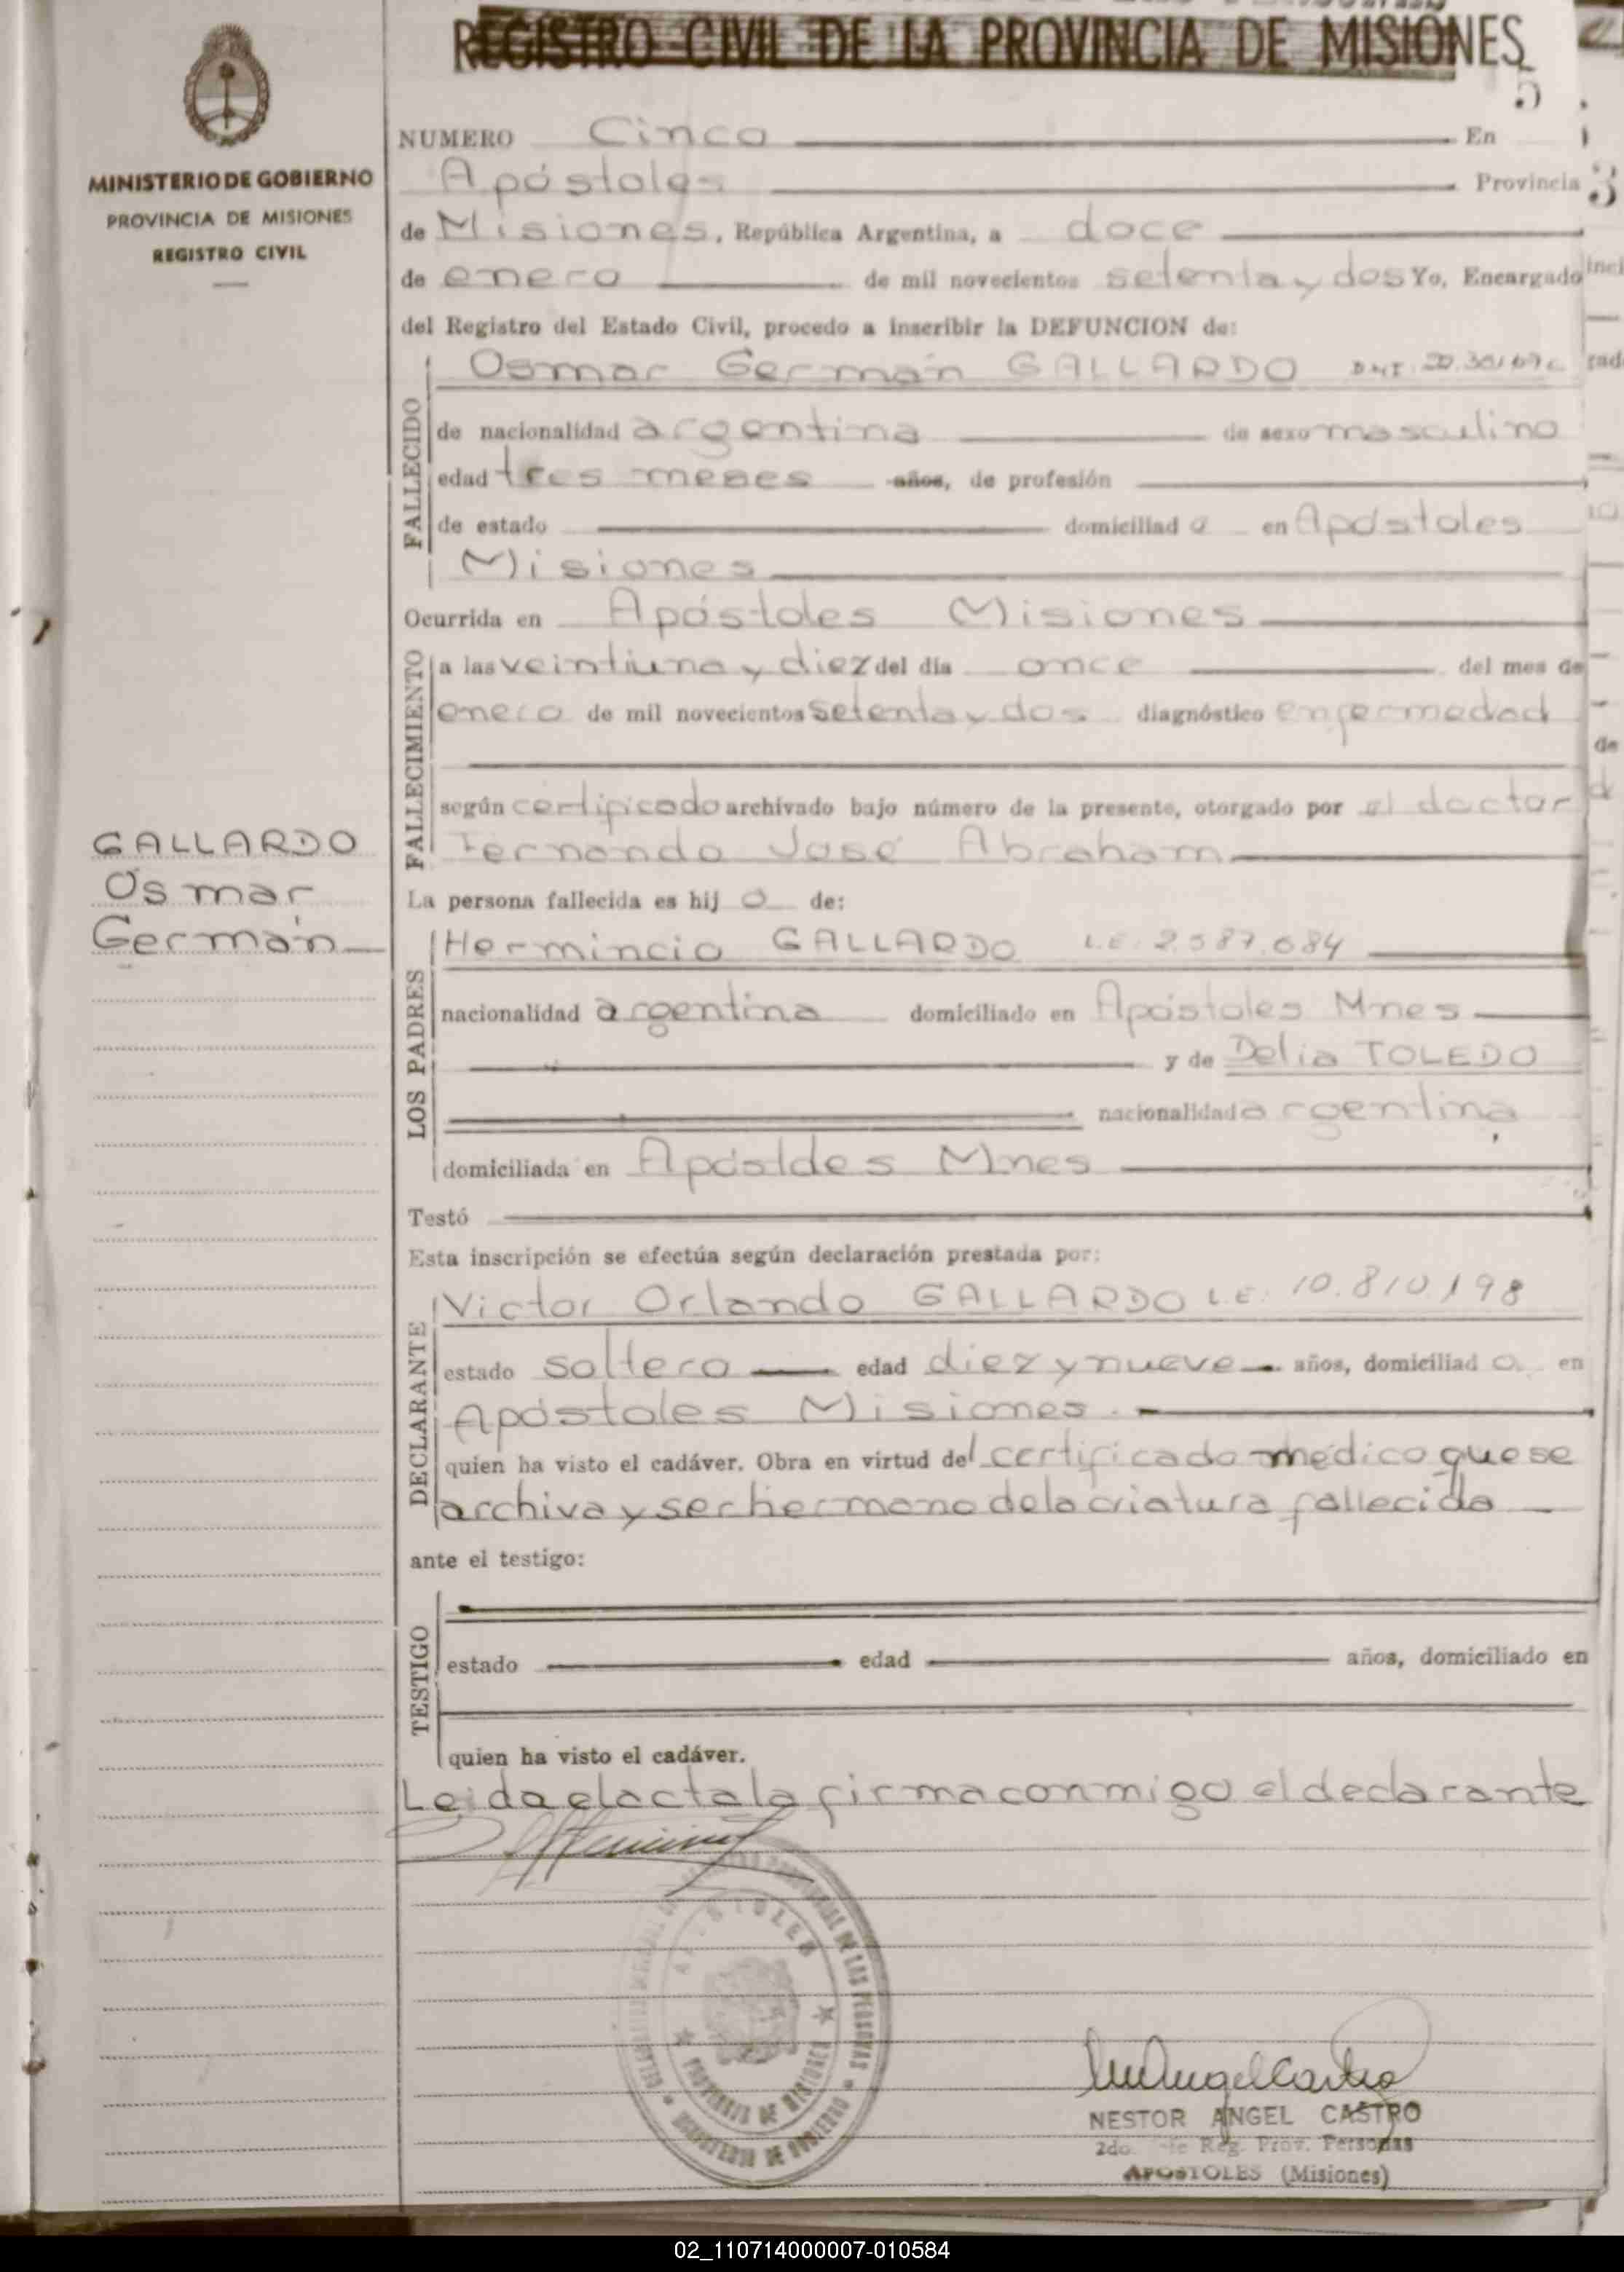 REGISTRO CIVIL DE LA PROVINCIA DE MISIONES
5
MINISTERIO DE GOBIERNO
PROVINCIA DE MISIONES
REGISTRO CIVIL
NUMERO Cinco En
Apóstoles Provincia
de Misiones, República Argentina, a doce
de enero de mil novecientos setenta y dos Yo, Encargado
del Registro del Estado Civil, procedo a inscribir la DEFUNCION de:
FALLECIDO
Osmar Germán GALLARDO DNI
de nacionalidad argentina de sexo masculino
edad tres meses años, de profesión
de estado domiciliad o en Apóstoles
Misiones
Ocurrida en Apóstoles Misiones
FALLECIMIENTO
a las veintiuna y diez del día once del mes de
enero de mil novecientos setenta y dos diagnóstico enfermedad
según certificado archivado bajo número de la presente, otorgado por el doctor
Fernando José Abraham
GALLARDO
Osmar
Germán
La persona fallecida es hij o de:
LOS PADRES
Hermincio GALLARDO L.E. 2.587.684
nacionalidad argentina domiciliado en Apóstoles Mnes
y de Delia TOLEDO
nacionalidad argentina
domiciliada en Apóstoles Mnes
Testó
Esta inscripción se efectúa según declaración prestada por:
DECLARANTE
Victor Orlando GALLARDO L.E. 10.810.198
estado soltero edad diez y nueve años, domiciliad o en
Apóstoles Misiones
quien ha visto el cadáver. Obra en virtud del certificado médico que se
archiva y ser hermano de la criatura fallecida
ante el testigo:
TESTIGO
estado edad años, domiciliado en
quien ha visto el cadáver.
Leida el acta la firma conmigo el declarante
APOSTOLES
PROVINCIA DE MISIONES
MINISTERIO DE GOBIERNO
DE LAS PERSONAS
NESTOR ANGEL CASTRO
2do. Reg. Prov. Personas
APOSTOLES (Misiones)
02_110714000007-010584